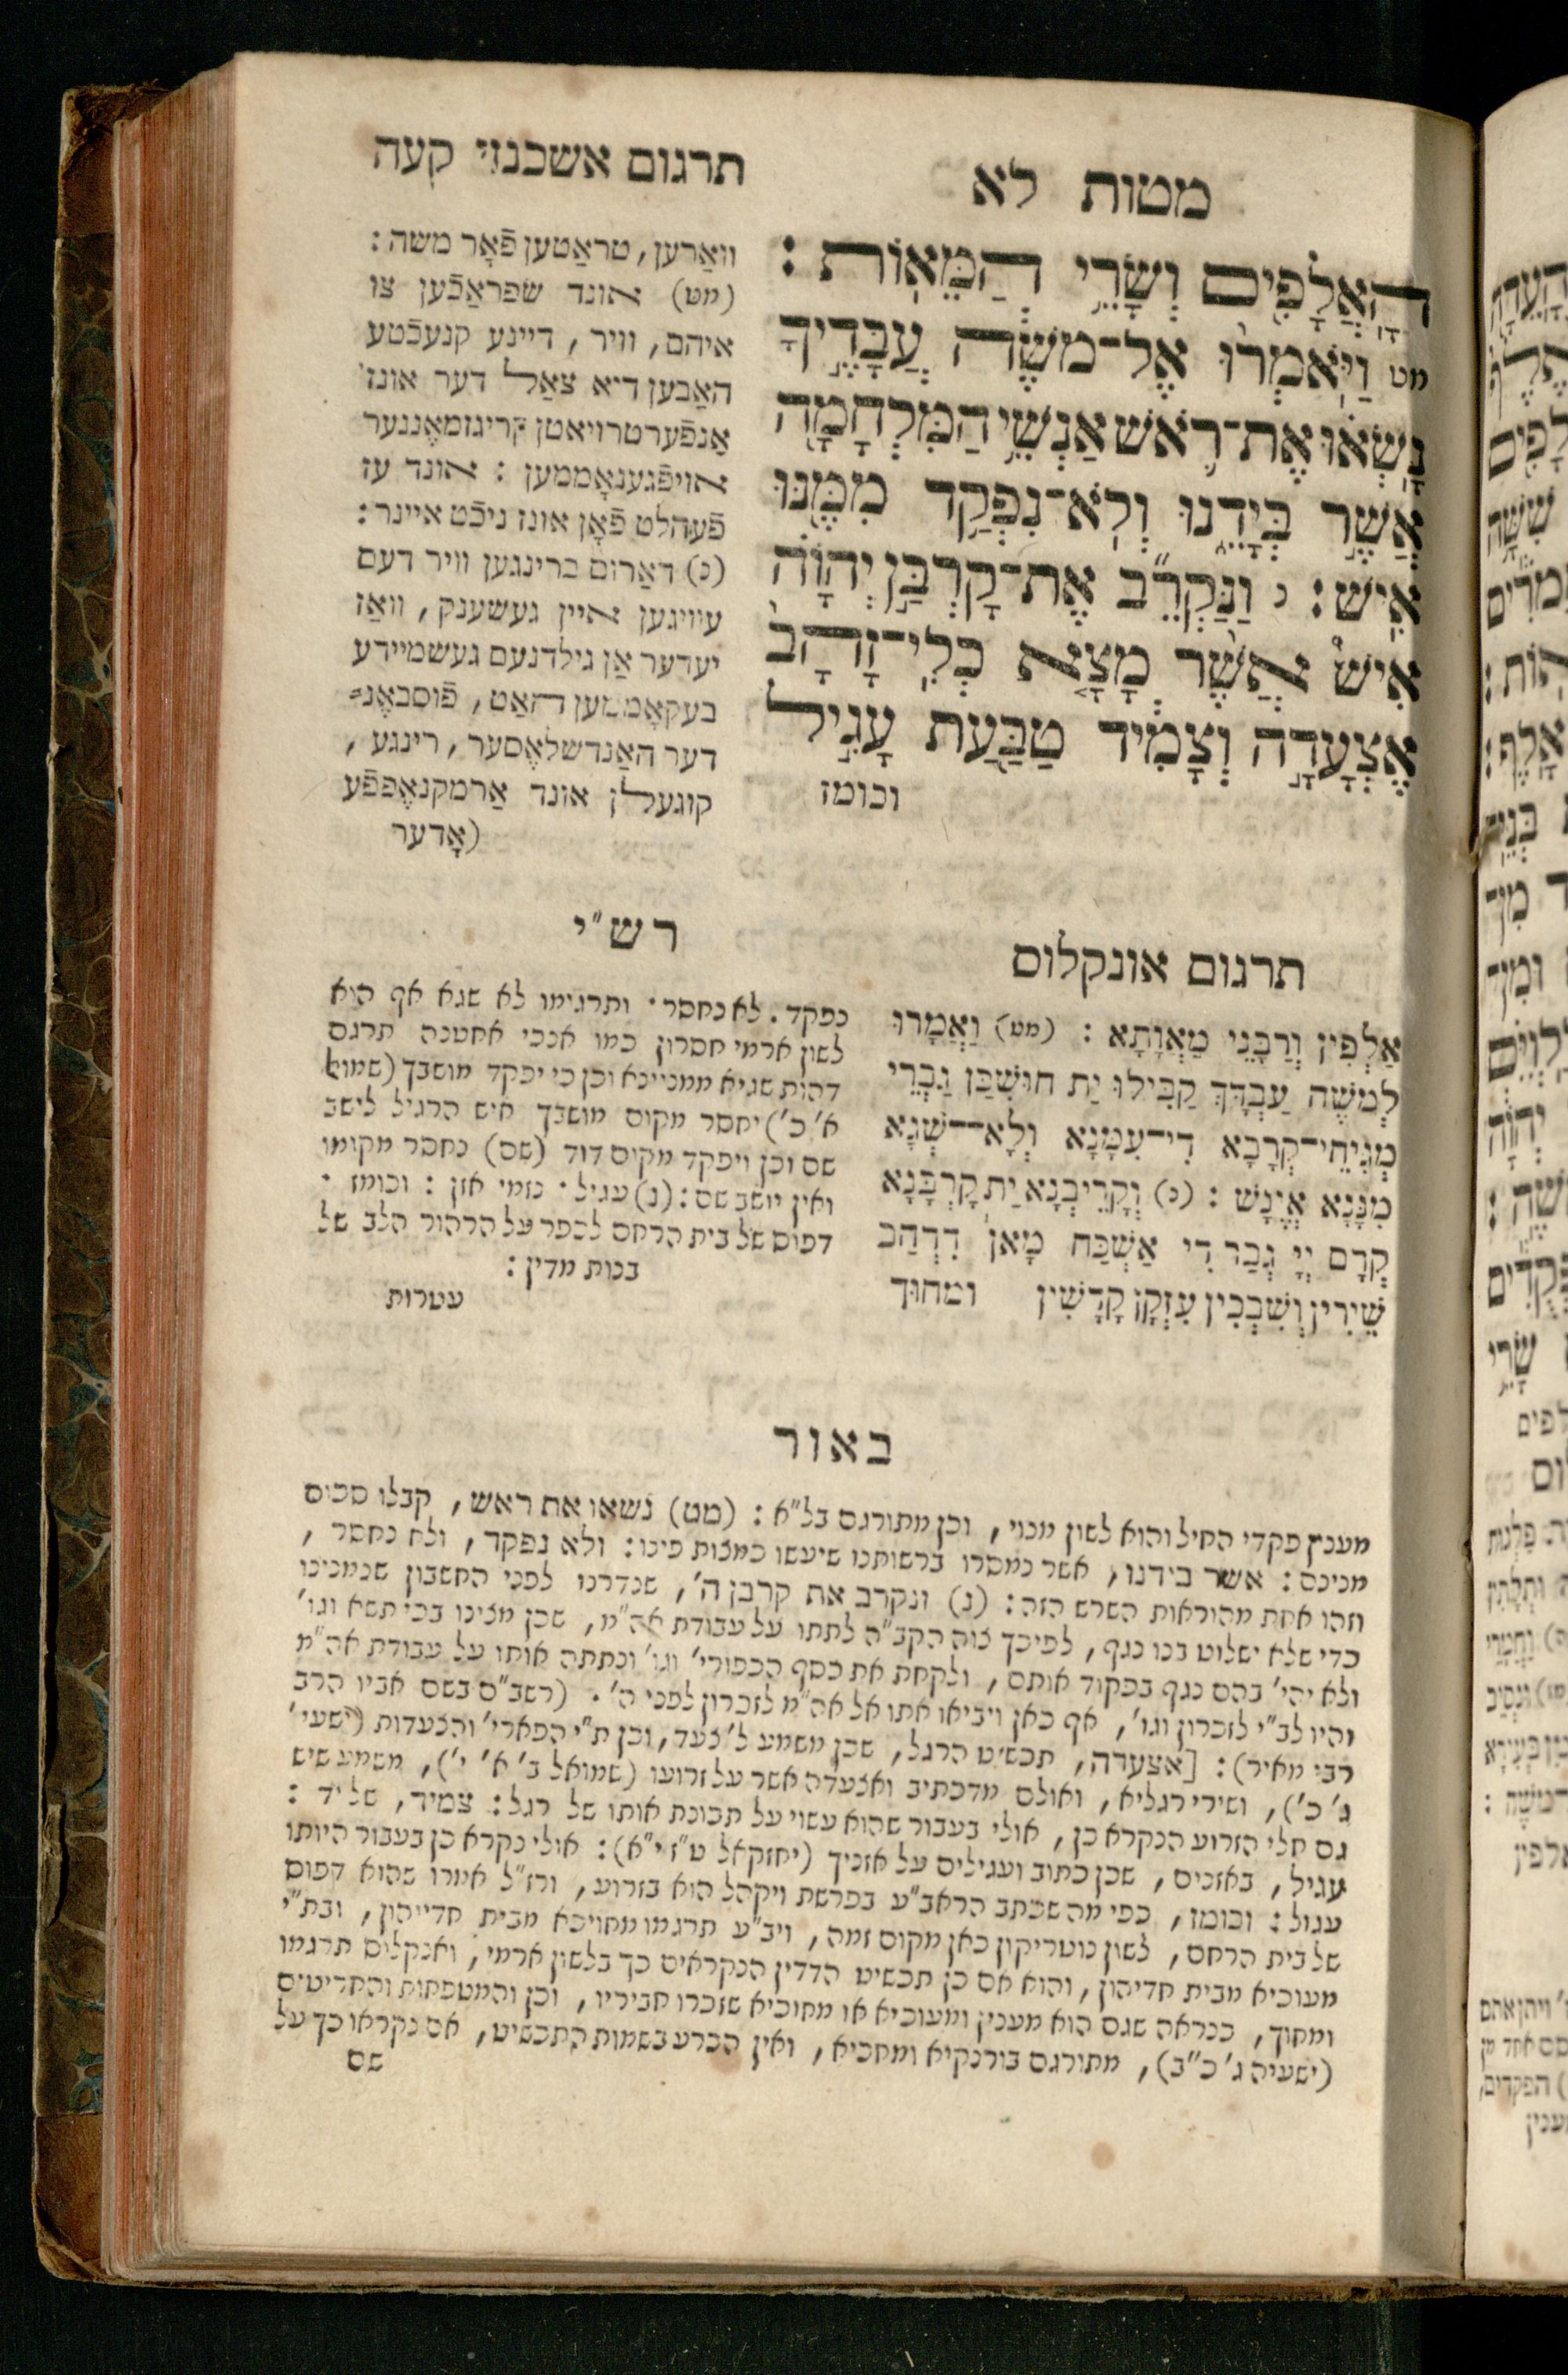 מטות לא
הָאֲלָפִים וְשָׂרֵי הַמֵּאוֹת :
מט וַיֹּאמְרוּ אֶל־משֶׁה עֲבָדֶיךָ
נָשְׂאוּ אֶת־רֹאשׁ אַנְשֵׁי הַמִּלְחָמָה
אֲשֶׁר בְּיָדֵנוּ וְלֹא־נִפְקַד מִמֶּנּוּ
אִישׁ : נ וַנַּקְרֵב אֶת־קָרְבַּן יְהוָֹה
אִישׁ אֲשֶׁר מָצָא כְלִי־זָהָב
אֶצְעָדָה וְצָמִיד טַבַּעַת עָגִיל
וכומז
תרגום אשכנזי קעה
וואַרען, טראַטען פֿאָר משה :
(מט) אונד שפראַכֿען צו
איהם, וויר, דיינע קנעכֿטע
האַבען דיא צאַל דער אונז
אַנפֿערטרויאטן קריגזמאֶננער
אויפֿגענאָממען : אונד עז
פֿעהלט פֿאָן אונז ניכֿט איינר :
(נ) דאַרום ברינגען וויר דעם
עוויגען איין געשענק, וואַז
יעדער אַן גילדנעם געשמיידע
בעקאָממען האַט, פֿוסבאֶנ־
דער האַנדשלאֶסער, רינגע,
קוגעלן אונד אַרמקנאֶפפֿע
(אָדער
תרגום אונקלוס
אַלְפִין וְרַבָּנֵי מַאֲוָתָא : (מט) וַאֲמָרוּ
לְמשֶׁה עַבְדָּךְ קַבִּילוּ יַת חוּשְׁבַּן גַּבְרֵי
מְגִיחֵי־קְרָבָא דִי־עִמָּנָא וְלָא־־שְׁגָא
מִנָּנָא אֱינָשׁ : (נ) וְקָרֵיבְנָא יַת קָרְבָּנָא
קֳדָם יְיָ גְּבַר דִּי אַשְׁכַּח מָאן דִּדְהַב
שֵׁירִין וְשִׁבְּכִין עִזְקָן קָדָשִׁין
ומחוך
רש"י
נפקד . לא נחסר · ותרגימו לא שגא אף הוא
לשון ארמי חסרון כמו אנכי אחטנה תרגם
דהות שגיא ממניינא וכן כי יפקד מושבך (שמואל
א' כ') יחסר מקום מושבך איש הרגיל לישב
שם וכן ויפקד מקום דוד (שם) נחסר מקומו
ואין יושב שם : (נ) עגיל · נזמי אזן : וכומז ·
דפוס של בית הרחם לכפר על הרהור הלב של
בנות מדין :
עטרות
באור
מענין פקדי החיל והוא לשון מנוי, וכן מתורגם בל"א : (מט) נשאו את ראש, קבלו סכום
מנינם : אשר בידנו, אשר נמסרו ברשותנו שיעשו כמצות פינו : ולא נפקד, ולא נחסר,
וזהו אחת מהוראות השרש הזה : (נ) ונקרב את קרבן ה', שנדרנו לפני החשבון שנמנינו
כדי שלא ישלוט בנו נגף, לפיכך צוה הקב"ה לתתו על עבודת אה"מ, שכן מצינו בכי תשא וגו'
ולא יהי' בהם נגף בפקוד אותם, ולקחת את כסף הכפורי' וגו' ונתתה אותו על עבודת אה"מ
והיו לב"י לזכרון וגו', אף כאן ויביאו אתו אל אה"מ לזכרון לפני ה' . (רשב"ם בשם אביו הרב
רבי מאיר) : [אצעדה, תכשיט הרגל, שכן משמע ל' צעד, וכן ת"י הפארי' והצעדות (ישעי'
ג' כ'), ושירי רגליא, ואולם מדכתיב ואצעדה אשר על זרועו (שמואל ב' א' י'), משמע שיש
גם חלי הזרוע הנקרא כן, אולי בעבור שהוא עשוי על תכונת אותו של רגל : צמיד, של יד :
עגיל, באזנים, שכן כתוב ועגילים על אזניך (יחזקאל ט"ז י"א) : אולי נקרא כן בעבור היותו
עגול : וכומז, כפי מה שכתב הראב"ע בפרשת ויקהל הוא בזרוע, ורז"ל אמרו שהוא דפוס
של בית הרחם, לשון נוטריקון כאן מקום זמה, ויב"ע תרגמו מחויכא מבית חדייהון, ובת"י
מעוכיא מבית חדיהון, והוא אם כן תכשיט הדדין הנקראים כך בלשון ארמי, ואנקלוס תרגמו
ומחוך, כנראה שגם הוא מענין ומעוכיא או מחוכיא שזכרו חביריו, וכן והמטפחות והחריטים
(ישעיה ג' כ"ב), מתורגם בורנקיא ומחכיא, ואין הכרע בשמות התכשיט, אם נקראו כך על
שם